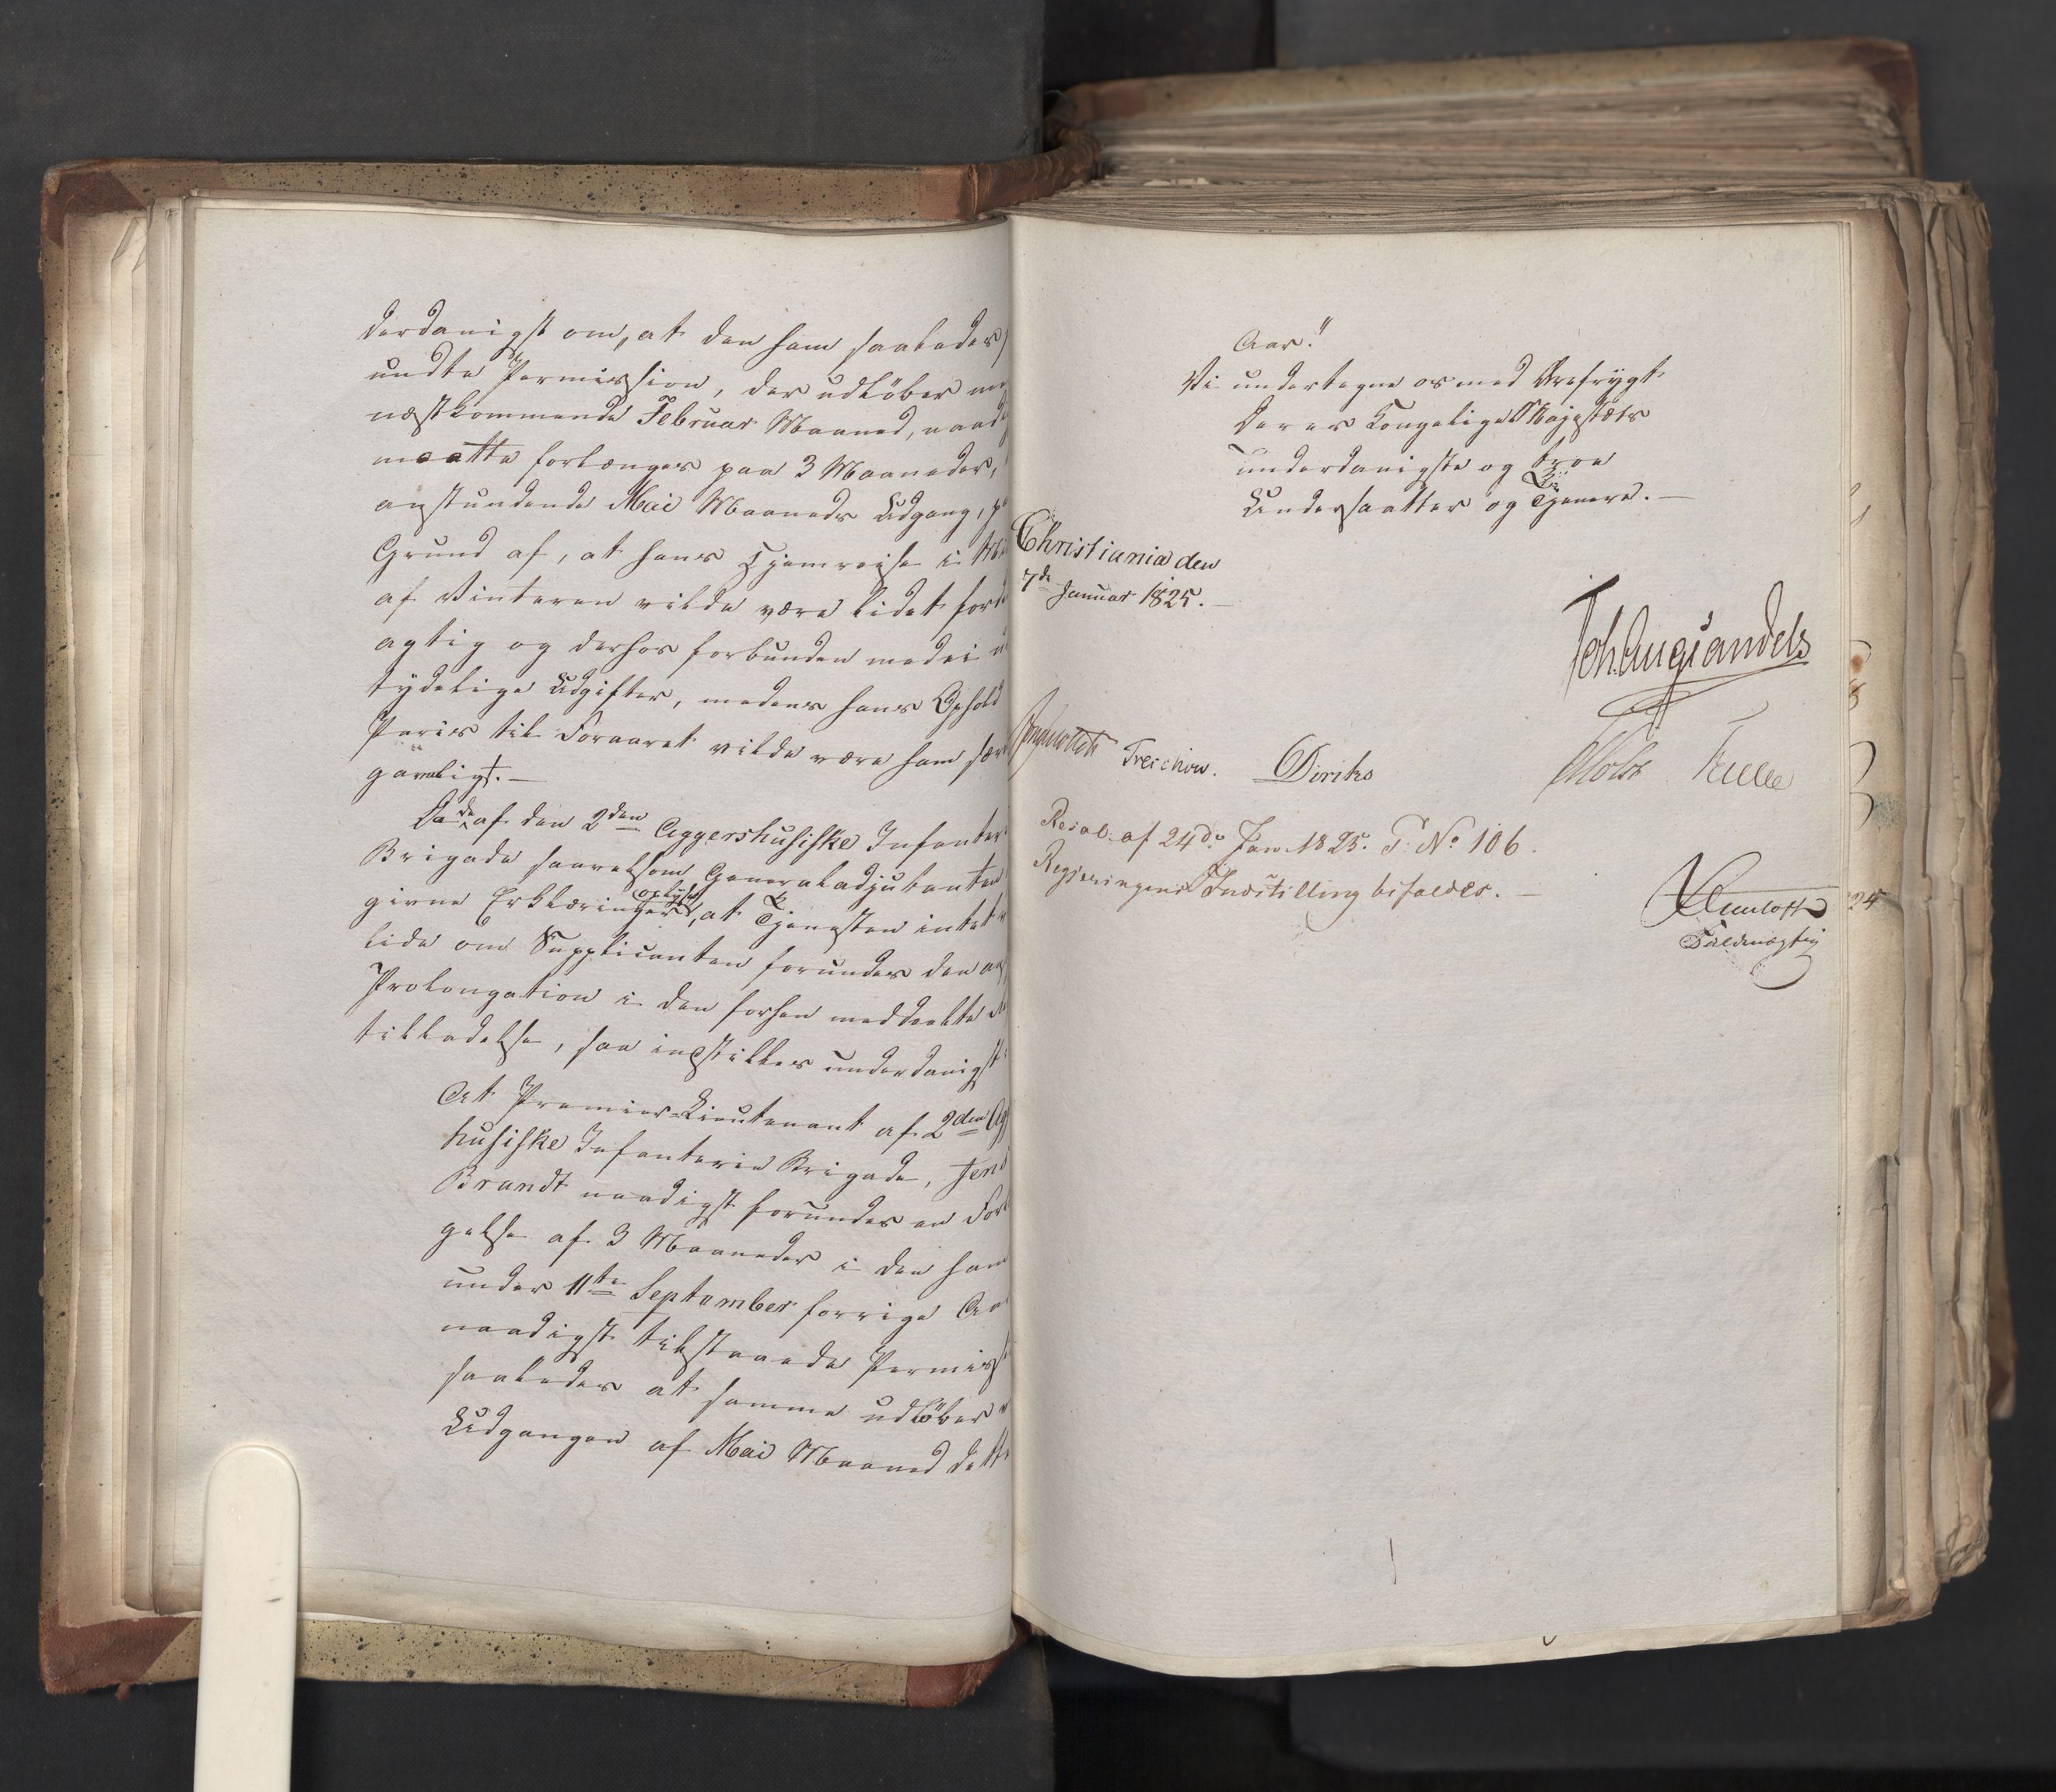 derdanigst om, at den ham saaledes
undte Permission, der udløber
næstkommende Februar Maaned, naad
maatte forlænges paa 3 Maaneder,
anstundende Mai Maaneds Udgang,
Grund af, at hans Hjemreise i
af Vinteren vilde være lidet ford
agtig og derhos forbunden med ei
tydelige Udgifter, medens hans Ophold
Paris til Foraaret vilde være ham
gavnligt.—
Da de af den 2den Aggershusiske Infanter
Brigade saavelsom Generaladjutanten
givne Erklæringer oplyse, at Tjenesten intet
lide om Supplicanten forundes den
Prolongation i den forhen meddeelte
tilladelse, saa indstilles underdanigst:
At Premier-Lieutenant af 2den Agg
husiske Infanterie Brigade, Jens
Brandt naadigst forundes en Forl
gelse af 3 Maaneder i den ham
under 11te September forrige Aar
naadigst tilstaaede Permiss
saaledes at samme udløber
Udgangen af Mai Maaned dette
Aar."
Vi undertegne os med Ærefrygt
Deres Kongelige Majestæts
underdanigste og troe
Undersaatter og Tjenere.—
Christiania den
7de Januar 1825.—
Joh. Aug. Sandels
Treschow. Diriks Motzfeldt
Resol. af 24de Jan. 1825. P. No 106.
Regjeringens Indstilling bifaldes.—
Fuldmægtig
24